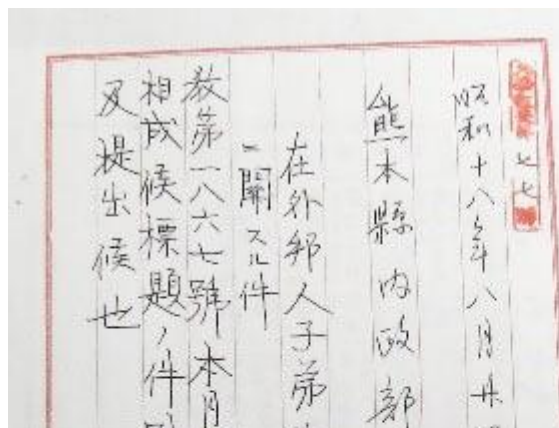 七七
昭和十八年八月廿
熊本縣内政部
在外邦人子弟
ニ關スル件
教第一八六七號本月
相成候標題ノ件
及提出候也